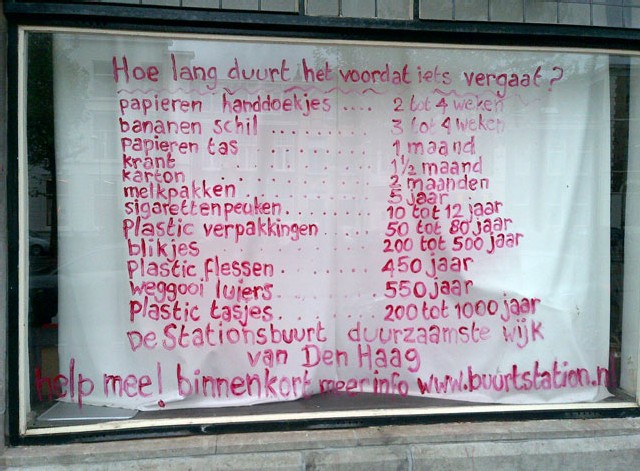 Hoe lang duurt het voordat iets vergaat?
papieren handdoekjes .... 2 tot 4 weken
bananen schil ........ 3 tot 4 weken
papieren tas ........ 1 maand
krant ........ 1½ maand
karton ........ 2 maanden
melkpakken ........ 5 jaar
sigarettenpeuken ........ 10 tot 12 jaar
plastic verpakkingen .... 50 tot 80 jaar
blikjes ........ 200 tot 500 jaar
plastic flessen ........ 450 jaar
weggooi luiers ........ 550 jaar
plastic tasjes ........ 200 tot 1000 jaar
De Stationsbuurt duurzaamste wijk
van Den Haag
help mee! binnenkort meer info www.buurtstation.nl